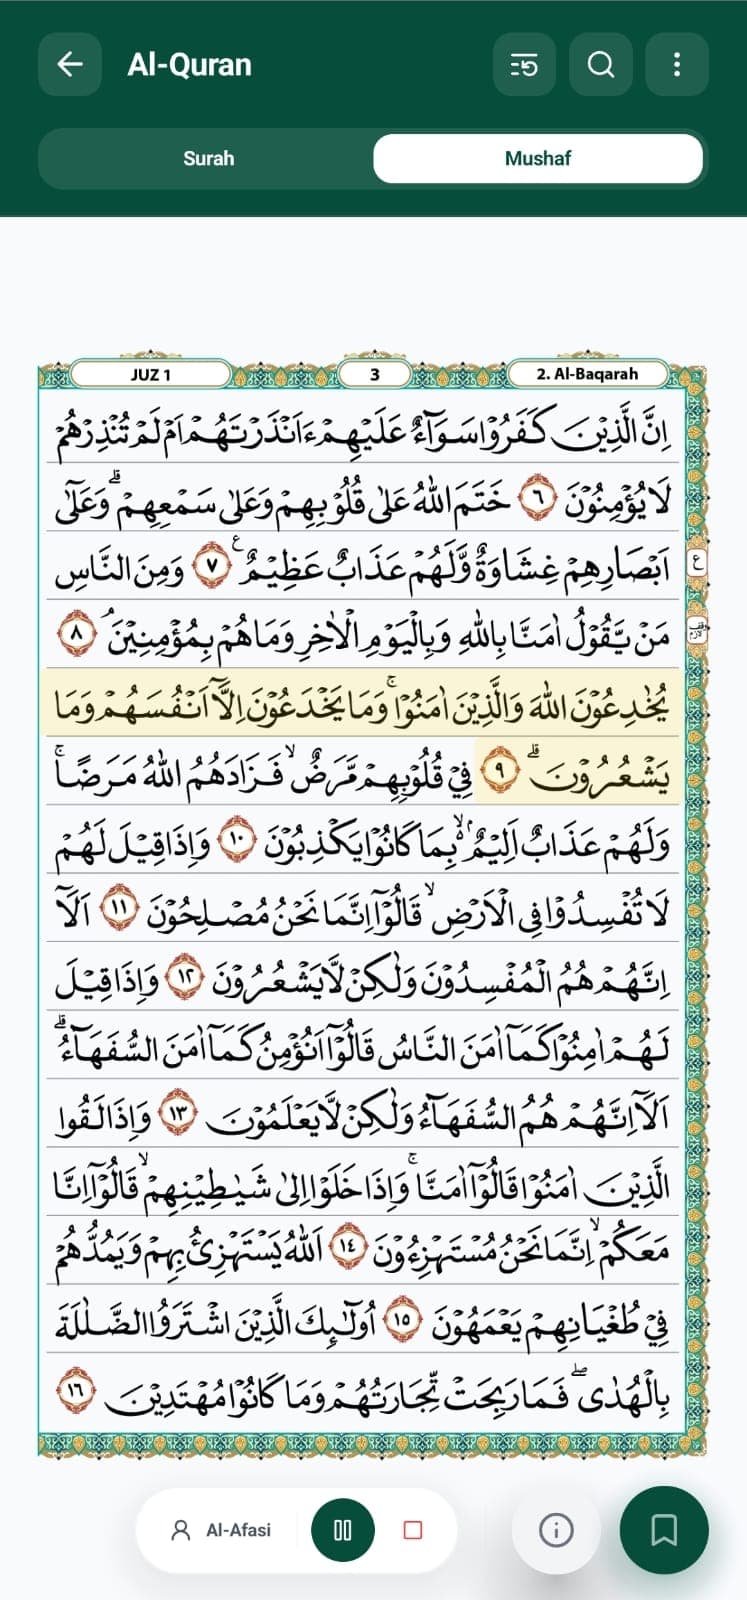 Al-Quran
Surah
Mushaf
JUZ 1
3
2. Al-Baqarah
اِنَّ الَّذِيْنَ كَفَرُوْا سَوَآءٌ عَلَيْهِمْ ءَاَنْذَرْتَهُمْ اَمْ لَمْ تُنْذِرْهُمْ
لَا يُؤْمِنُوْنَ ٦ خَتَمَ اللّٰهُ عَلٰى قُلُوْبِهِمْ وَعَلٰى سَمْعِهِمْ ۗ وَعَلٰٓى
اَبْصَارِهِمْ غِشَاوَةٌ وَّلَهُمْ عَذَابٌ عَظِيْمٌ ࣖ ٧ وَمِنَ النَّاسِ
ع
مَنْ يَّقُوْلُ اٰمَنَّا بِاللّٰهِ وَبِالْيَوْمِ الْاٰخِرِ وَمَا هُمْ بِمُؤْمِنِيْنَۘ ٨
وقف لازم
يُخٰدِعُوْنَ اللّٰهَ وَالَّذِيْنَ اٰمَنُوْا ۚ وَمَا يَخْدَعُوْنَ اِلَّآ اَنْفُسَهُمْ وَمَا
يَشْعُرُوْنَ ۗ ٩ فِيْ قُلُوْبِهِمْ مَّرَضٌ ۙ فَزَادَهُمُ اللّٰهُ مَرَضًا ۚ
وَلَهُمْ عَذَابٌ اَلِيْمٌ ۢ ەۙ بِمَا كَانُوْا يَكْذِبُوْنَ ١٠ وَاِذَا قِيْلَ لَهُمْ
لَا تُفْسِدُوْا فِى الْاَرْضِ ۙ قَالُوْٓا اِنَّمَا نَحْنُ مُصْلِحُوْنَ ١١ اَلَآ
اِنَّهُمْ هُمُ الْمُفْسِدُوْنَ وَلٰكِنْ لَّا يَشْعُرُوْنَ ١٢ وَاِذَا قِيْلَ
لَهُمْ اٰمِنُوْا كَمَآ اٰمَنَ النَّاسُ قَالُوْٓا اَنُؤْمِنُ كَمَآ اٰمَنَ السُّفَهَاۤءُ ۗ
اَلَآ اِنَّهُمْ هُمُ السُّفَهَاۤءُ وَلٰكِنْ لَّا يَعْلَمُوْنَ ١٣ وَاِذَا لَقُوا
الَّذِيْنَ اٰمَنُوْا قَالُوْٓا اٰمَنَّا ۚ وَاِذَا خَلَوْا اِلٰى شَيٰطِيْنِهِمْ ۙ قَالُوْٓا اِنَّا
مَعَكُمْ ۙ اِنَّمَا نَحْنُ مُسْتَهْزِءُوْنَ ١٤ اَللّٰهُ يَسْتَهْزِئُ بِهِمْ وَيَمُدُّهُمْ
فِيْ طُغْيَانِهِمْ يَعْمَهُوْنَ ١٥ اُولٰۤىِٕكَ الَّذِيْنَ اشْتَرَوُا الضَّلٰلَةَ
بِالْهُدٰى ۖ فَمَا رَبِحَتْ تِّجَارَتُهُمْ وَمَا كَانُوْا مُهْتَدِيْنَ ١٦
Al-Afasi